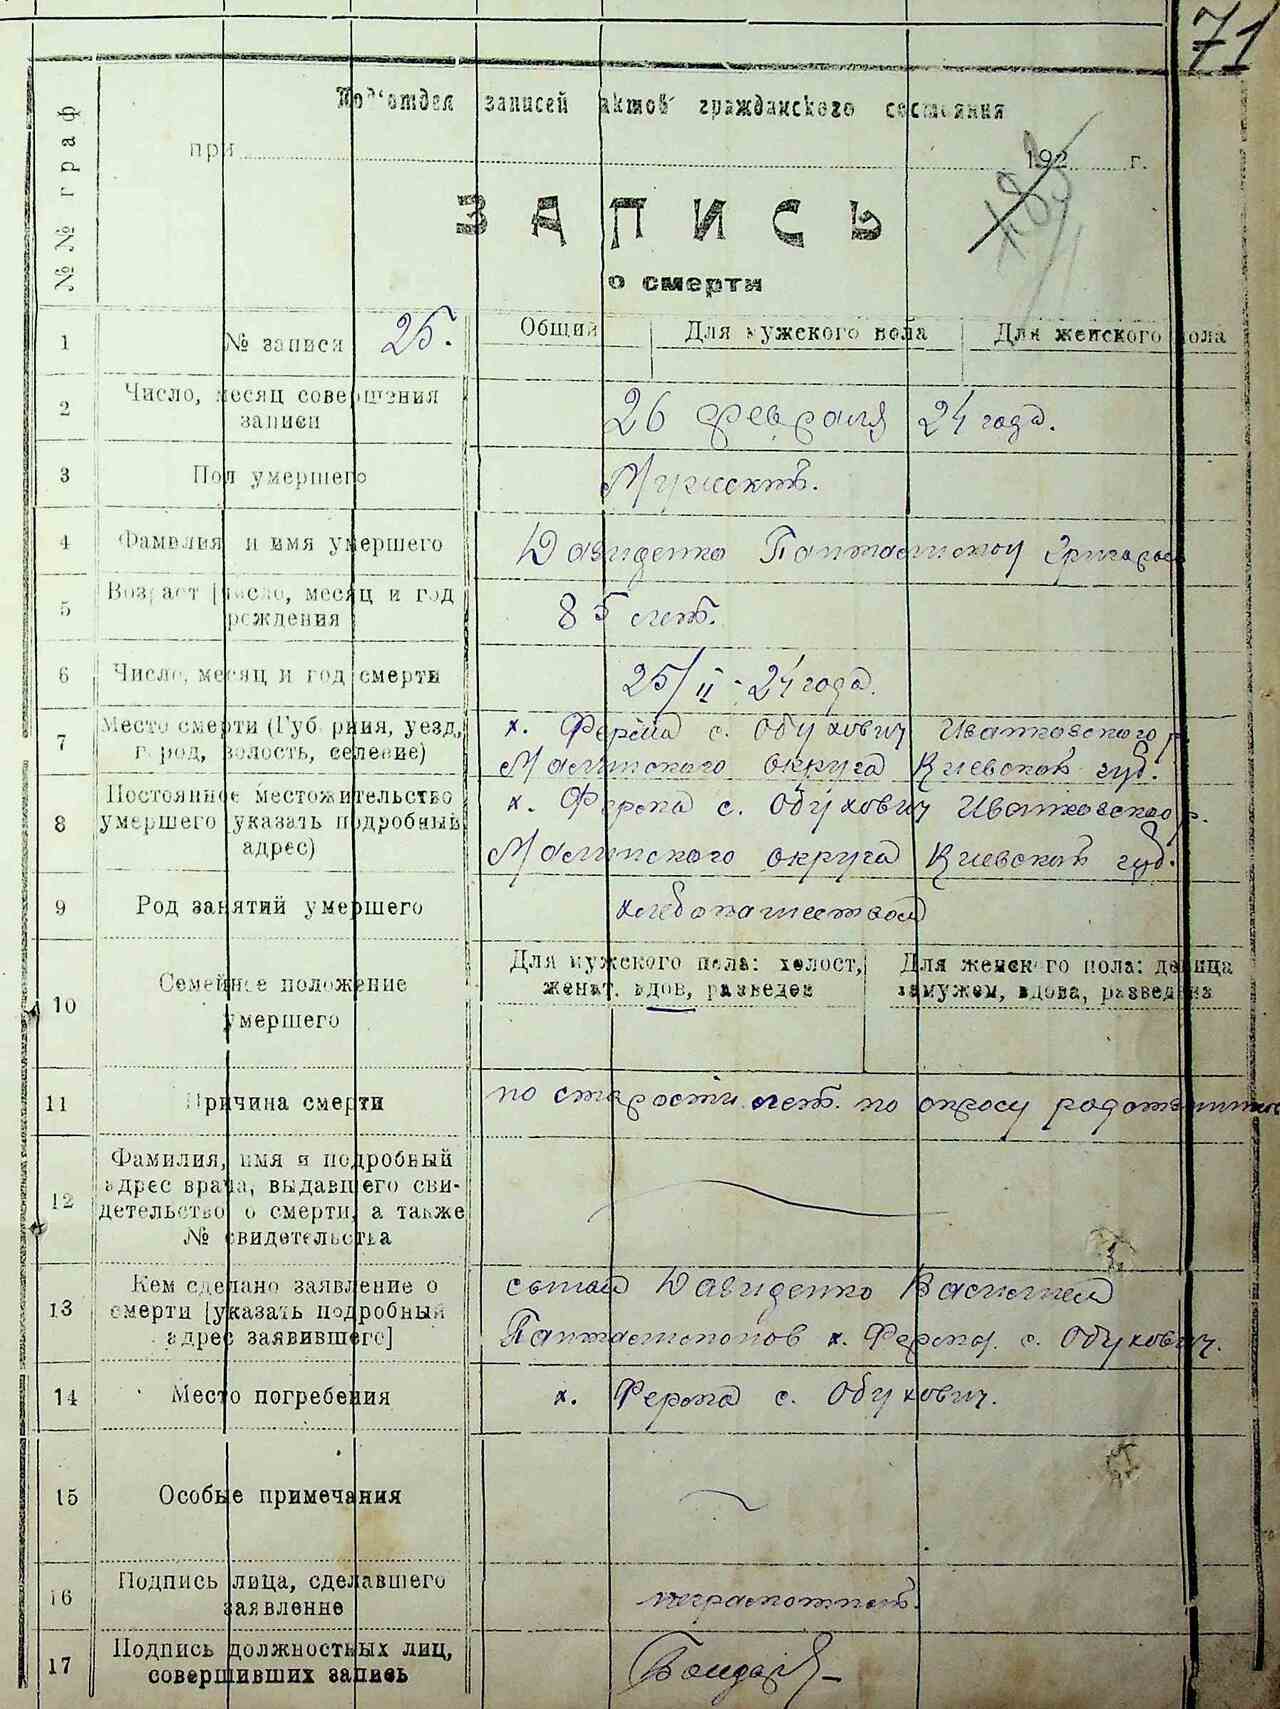 71
№№ граф
Под'отдел записей актов гражданского состояния
при 192 г.
ЗАПИСЬ
о смерти
1 № записи 25. Общий Для мужского пола Для женского пола
2 Число, месяц совершения
записи
26 февраля 24 года.
3 Пол умершего Мужскъ.
4 Фамилия и имя умершего Давиденко Пантаелимон Григоров
5 Возраст [число, месяц и год
рождения
85 лет.
6 Число, месяц и год смерти 25/II - 24 года.
7 Место смерти (Губерния, уезд,
город, волость, селение)
х. Ферма с. Обухович Иванковского р.
Малинского округа Киевской губ.
8 Постоянное местожительство
умершего (указать подробный
адрес)
х. Ферма с. Обухович Иванковского р.
Малинского округа Киевской губ.
9 Род занятий умершего хлебопашеством
10 Семейное положение
умершего
Для мужского пола: холост,
женат, вдов, разведен
Для женского пола: девица
замужем, вдова, разведена
11 Причина смерти по старости лет. по опросу
12 Фамилия, имя и подробный
адрес врача, выдавшего сви-
детельство о смерти, а также
№ свидетельства
13 Кем сделано заявление о
смерти [указать подробный
адрес заявившего]
сыном Давиденко Василием
х. Ферма. с. Обухович.
14 Место погребения х. Ферма с. Обухович.
15 Особые примечания
16 Подпись лица, сделавшего
заявление
неграмотный.
17 Подпись должностных лиц,
совершивших запись
Бондарь